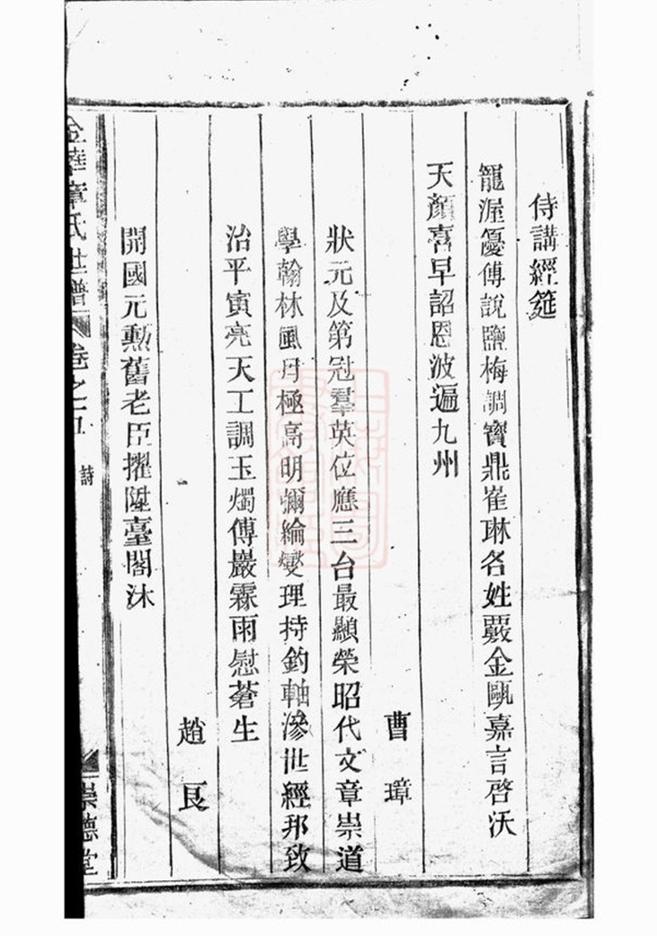 侍講經筵
寵渥優傅說鹽梅調寶鼎崔琳名姓覆金甌嘉言啓沃
天顏喜早詔恩波遍九州
曹璋
狀元及第冠羣英位應三台最顯榮昭代文章崇道
學翰林風月極高明彌綸燮理持鈞軸濟世經邦致
治平寅亮天工調玉燭傅巖霖雨慰蒼生
趙良
開國元勲舊老臣擢陞臺閣沐
金華章氏世譜 卷之五 詩 崇德堂